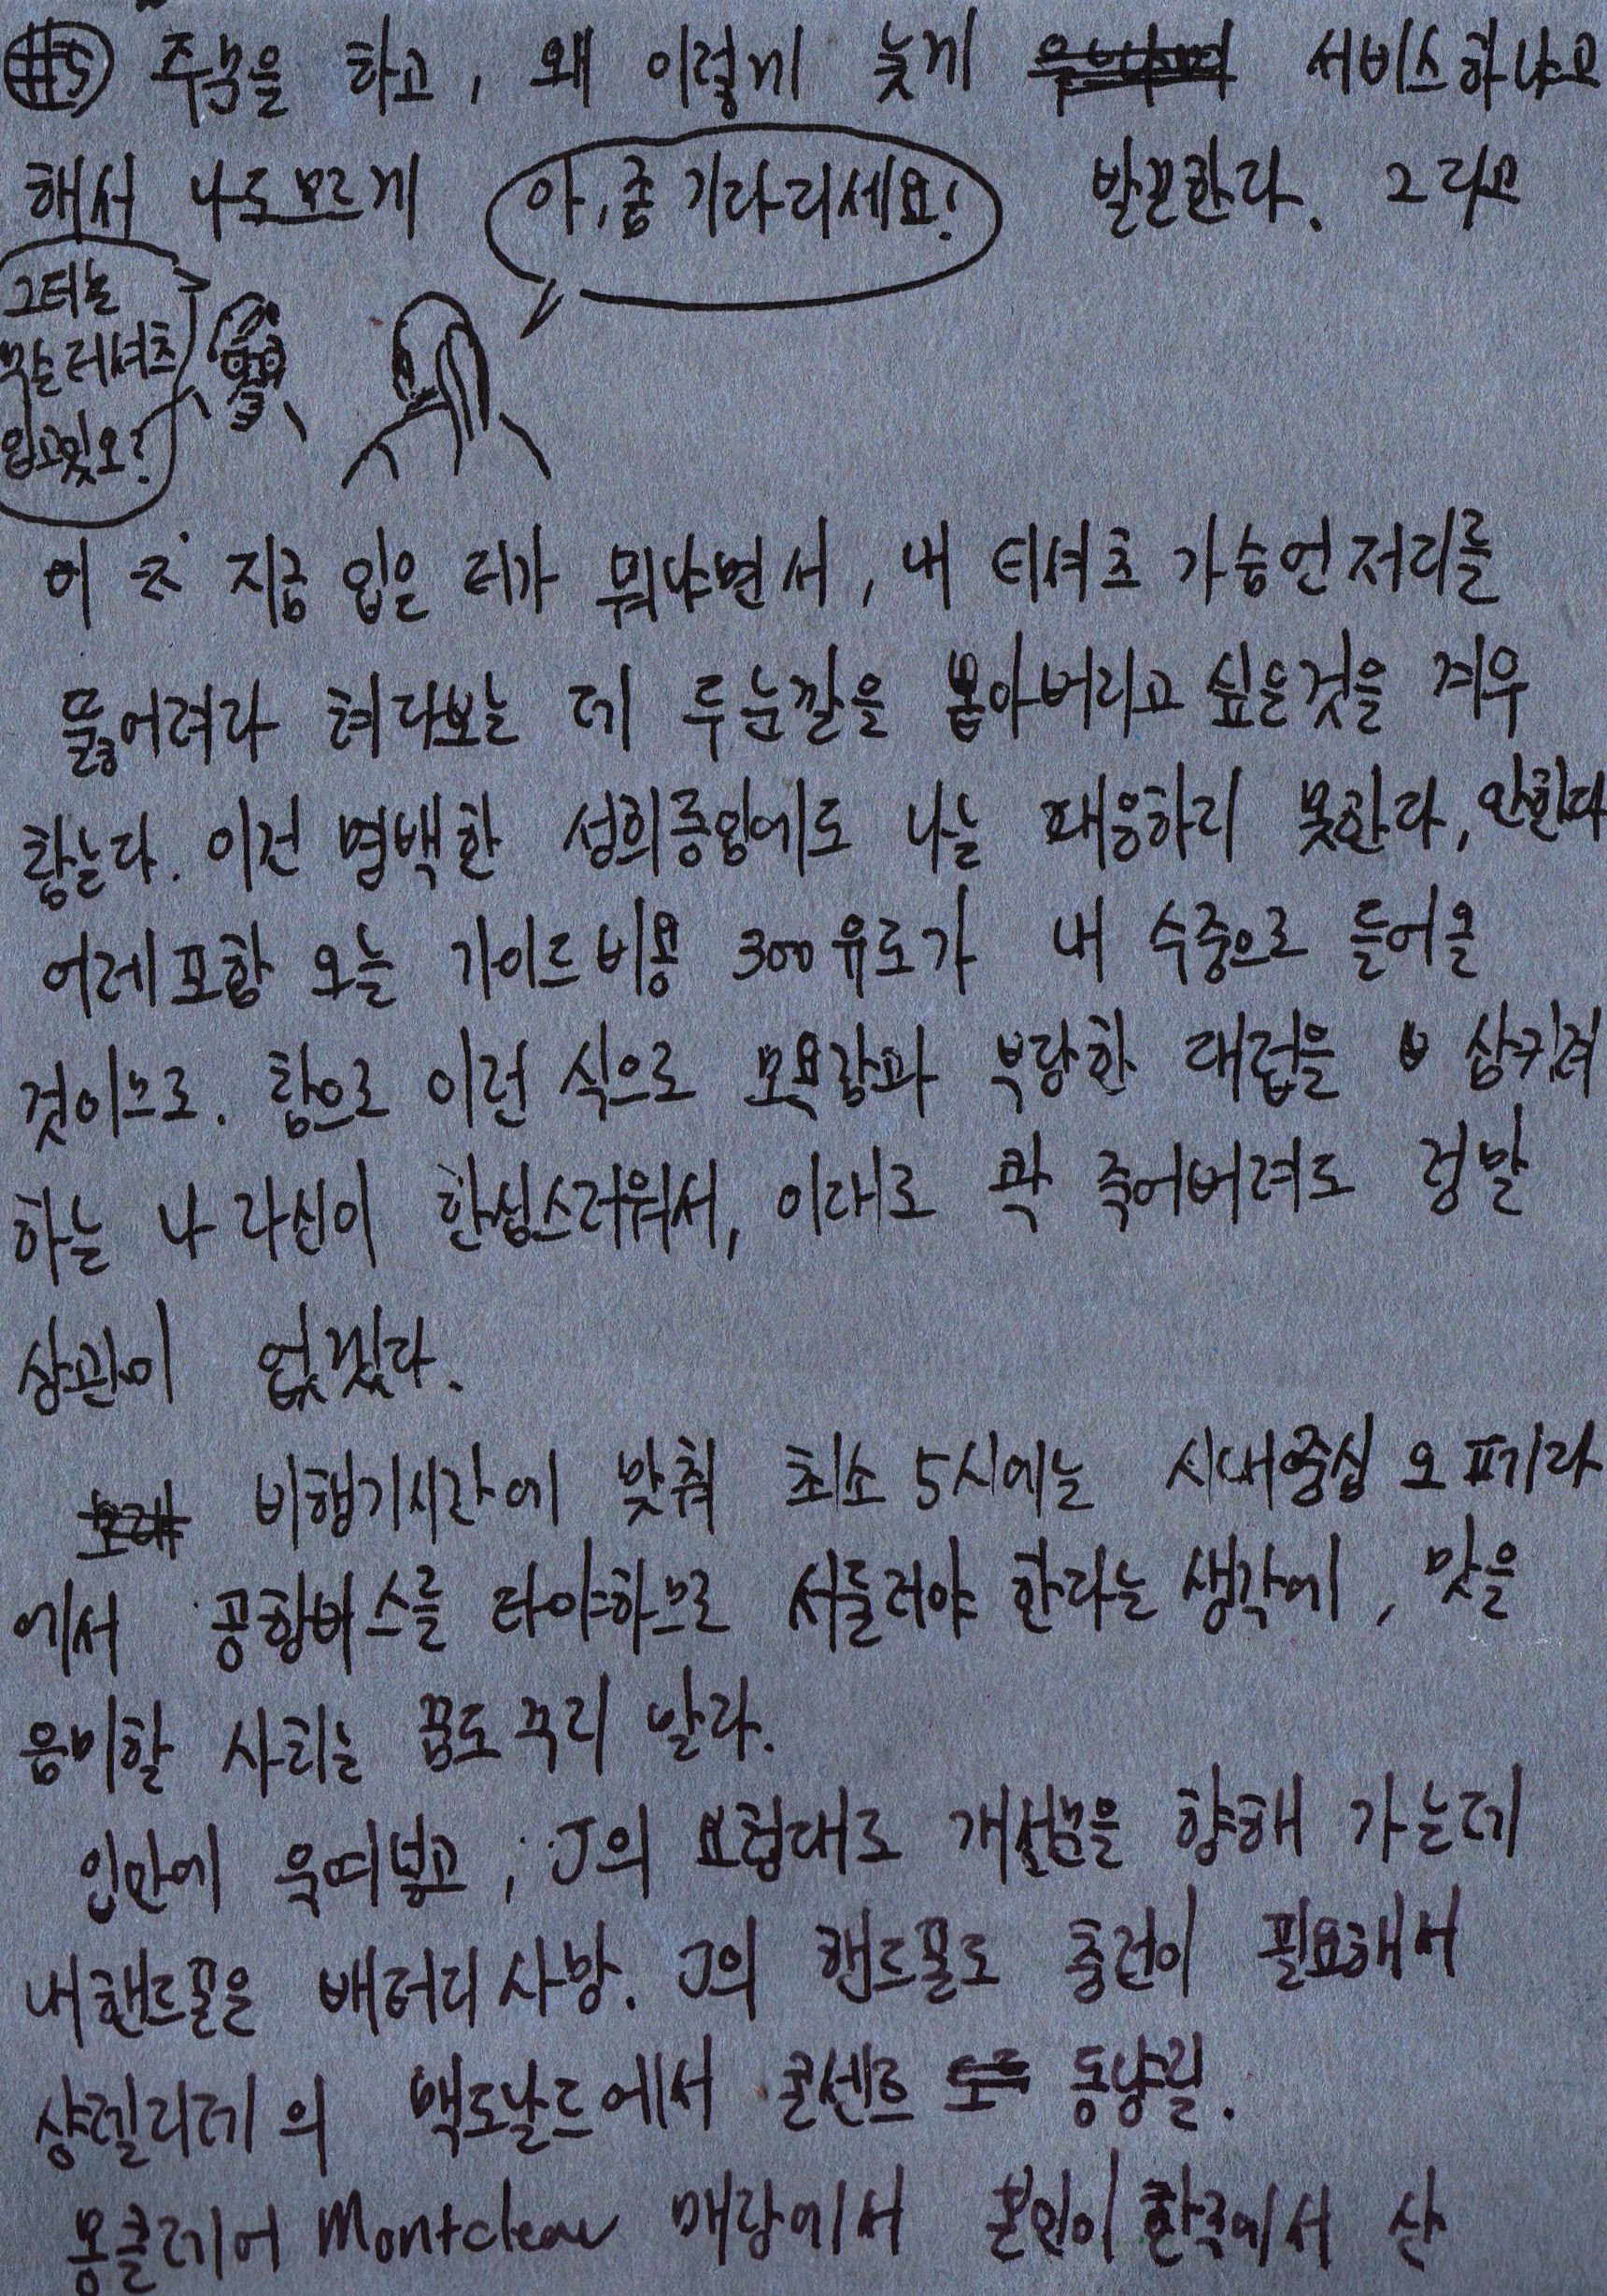 #5 주문을 하고, 왜 이렇게 늦게 서비스하냐고
해서 나도모르게 아,좀 기다리세요! 발끈한다. 그리고
그대는
무슨 티셔츠
입고있오?
이 지금 입은 티가 뭐냐면서, 내 티셔츠 가슴언저리를
뚫어져라 쳐다보는 데 두눈깔을 뽑아버리고 싶은것을 겨우
참는다. 이건 명백한 성희롱임에도 나는 대응하지 못한다, 안한다
어제포함 오늘 가이드비용 300유로가 내 수중으로 들어올
것이므로. 참으로 이런 식으로 모욕감과 부당한 대접을 삼키려
하는 나 자신이 한심스러워서, 이대로 콱 죽어버려도 정말
상관이 없겠다.
비행기시간에 맞춰 최소 5시에는 시내중심 오페라
에서 공항버스를 타야하므로 서둘러야 한다는 생각에, 맛을
음미할 사치는 꿈도 꾸지 말자.
입안에 욱여넣고, J의 요청대로 개선문을 향해 가는데
내핸드폰은 배터리 사망. J의 핸드폰도 충전이 필요해서
샹젤리제의 맥도날드에서 콘센트 동냥질.
몽클레어 Montclear 매장에서 본인이 한국에서 산